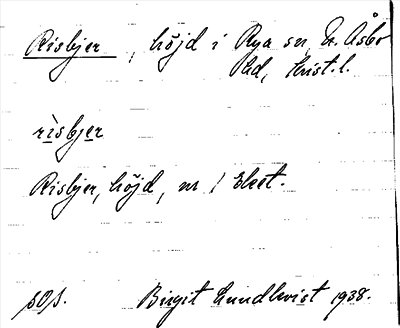 Risbjer, höjd i Rya sn, N. Åsbo
hd, Krist. l.
rìsbjer
Risbjer, höjd, nr 1 Ekest.
sOs. Birgit Lundkvist 1938.